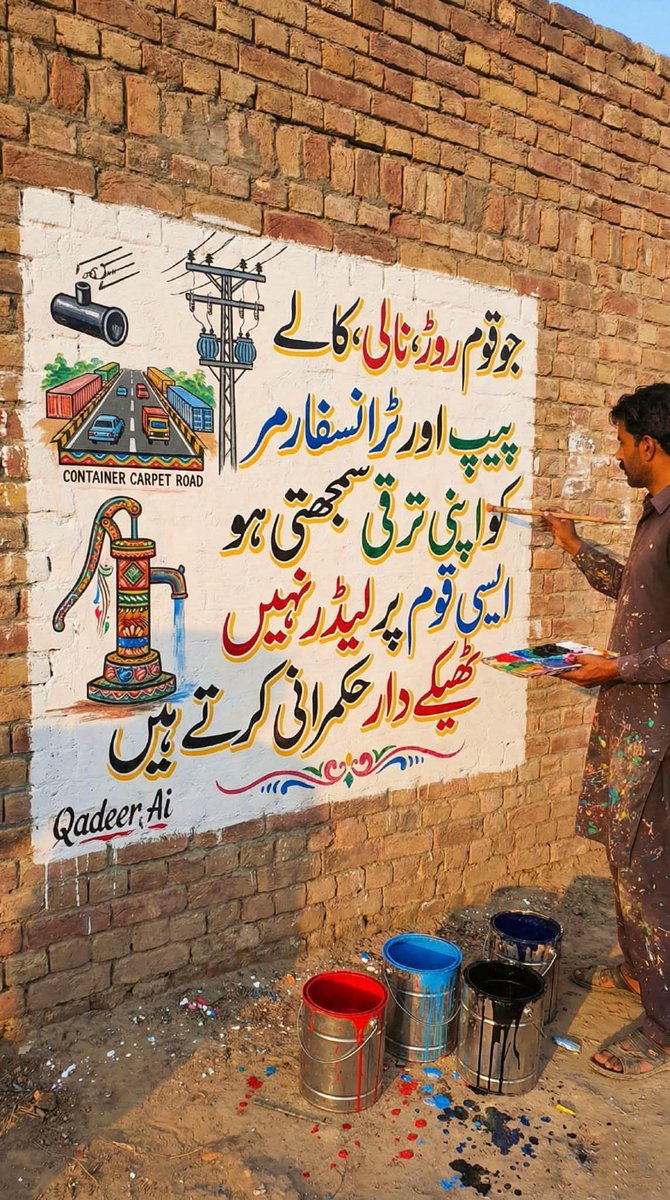 جو قوم روڑ، نالی، کالے
پیپ اور ٹرانسفارمر
کو اپنی ترقی سمجھتی ہو
ایسی قوم پر لیڈر نہیں
ٹھیکے دار حکمرانی کرتے ہیں
CONTAINER CARPET ROAD
Qadeer Ai